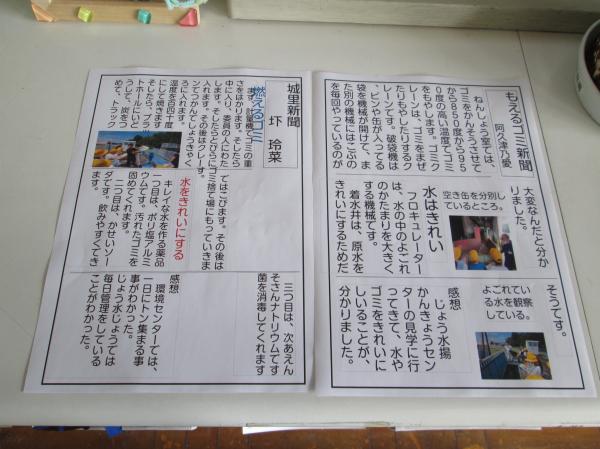 もえるゴミ新聞
阿久津乃愛
ねんしょう室では、
ゴミをかんそうさせて
から850度から95
0度の高い温度でゴミ
をもやします。ゴミク
レーンは、ゴミをまぜ
たりもやしたりするク
レーンです。破袋機は
、ビンや缶が入ってる
袋を機械が開けて、ま
た別の機械にはこぶの
を毎回やっているのが
大変なんだと分か
りました。
空き缶を分別し
ているところ。
水はきれい
フロキュレーター
は、水の中のよごれ
のかたまりを大きく
する機械です。
着水井は、原水を
きれいにするためだ
そうです。
よごれてい
る水を観察
している。
感想
じょう水場
かんきょうセン
ターの見学に行
ってきて、水や
ゴミをきれいに
しいることが、
分かりました。
城里新聞
圷 玲菜
燃えるゴミ
まず、計量機でゴミの重
さをはかります。そしたら
中に入り、委員の人にわた
します。そしたらとびらにゴミ
入れます。その後はクレー
ンでつかんでしょうきゃく
ろに入れます。
にして焼きます
温度を百四十度
そしたら、プラ
トホールにいど
うして、炭をつ
めて、トラック
てはこびます。その後は
ゴミ捨て場にもっていきま
す。
水をきれいにする
キレイな水を作る薬品
一つ目は、ポリ塩アルミ
ウムです。汚れたゴミを
固めてくれます。
二つ目は、かせいソー
ダです。飲みやすくてき
ます。
三つ目は、次あえん
そさんナトリウムです
菌を消毒してくれます
感想
環境センターでは、
一日にトン集まる事
事がわかった。
じょう水じょうては
毎日管理をしている
ことがわかった。